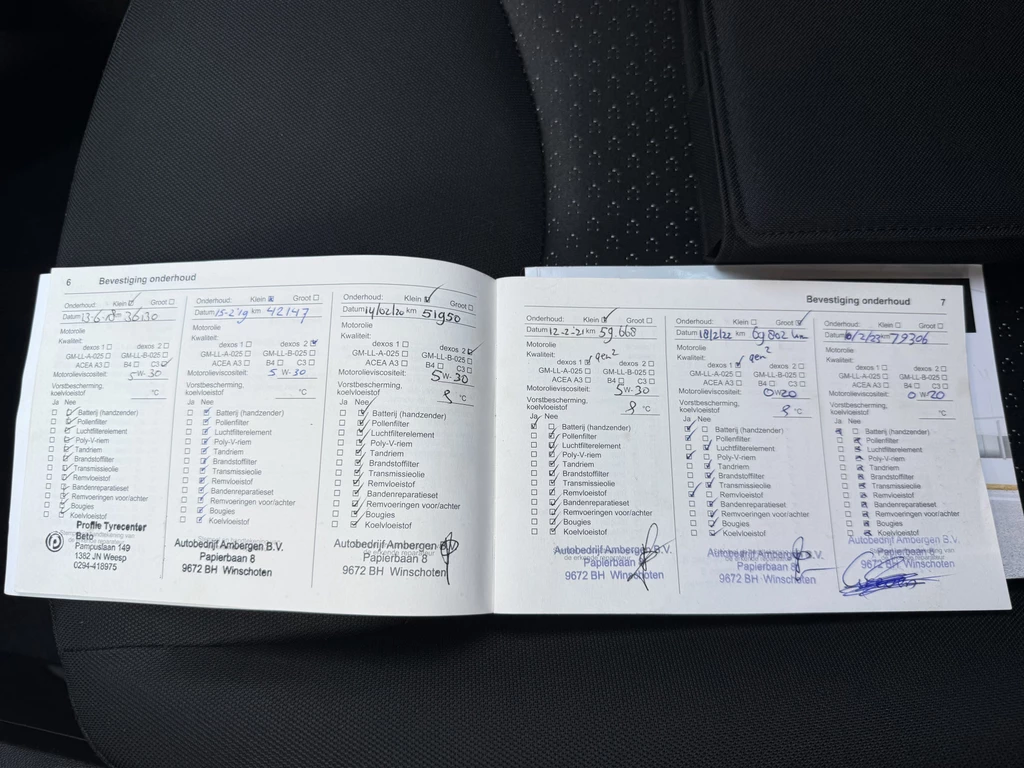 6 Bevestiging onderhoud
Onderhoud: Klein Groot
Datum 13-6-18 km 36130
Motorolie
Kwaliteit:
dexos 1 dexos 2
GM-LL-A-025 GM-LL-B-025
ACEA A3 B4 C3
Motorolieviscositeit: 5W-30
Vorstbescherming,
koelvloeistof °C
Ja Nee
Batterij (handzender)
Pollenfilter
Luchtfilterelement
Poly-V-riem
Tandriem
Brandstoffilter
Transmissieolie
Remvloeistof
Bandenreparatieset
Remvoeringen voor/achter
Bougies
Koelvloeistof
Profile Tyrecenter
Beto
Pampuslaan 149
1382 JN Weesp
0294-418975
Onderhoud: Klein Groot
Datum 15-2-'19 km 42147
Motorolie
Kwaliteit:
dexos 1 dexos 2
GM-LL-A-025 GM-LL-B-025
ACEA A3 B4 C3
Motorolieviscositeit: 5 W-30
Vorstbescherming,
koelvloeistof °C
Ja Nee
Batterij (handzender)
Pollenfilter
Luchtfilterelement
Poly-V-riem
Tandriem
Brandstoffilter
Transmissieolie
Remvloeistof
Bandenreparatieset
Remvoeringen voor/achter
Bougies
Koelvloeistof
Autobedrijf Ambergen B.V.
Papierbaan 8
9672 BH Winschoten
Onderhoud: Klein Groot
Datum 14/02/20 km 51950
Motorolie
Kwaliteit:
dexos 1 dexos 2
GM-LL-A-025 GM-LL-B-025
ACEA A3 B4 C3
Motorolieviscositeit: 5W-30
Vorstbescherming,
koelvloeistof °C
Ja Nee
Batterij (handzender)
Pollenfilter
Luchtfilterelement
Poly-V-riem
Tandriem
Brandstoffilter
Transmissieolie
Remvloeistof
Bandenreparatieset
Remvoeringen voor/achter
Bougies
Koelvloeistof
Autobedrijf Ambergen
Papierbaan 8
9672 BH Winschoten
Bevestiging onderhoud 7
Onderhoud: Klein Groot
Datum 12-2-21 km 59 668
Motorolie
Kwaliteit:
dexos 1 gen2 dexos 2
GM-LL-A-025 GM-LL-B-025
ACEA A3 B4 C3
Motorolieviscositeit: 5W-30
Vorstbescherming,
koelvloeistof °C
Ja Nee
Batterij (handzender)
Pollenfilter
Luchtfilterelement
Poly-V-riem
Tandriem
Brandstoffilter
Transmissieolie
Remvloeistof
Bandenreparatieset
Remvoeringen voor/achter
Bougies
Koelvloeistof
Autobedrijf Ambergen B.V.
Papierbaan 8
9672 BH Winschoten
Onderhoud: Klein Groot
Datum 18/2/22 km 69 802 km
Motorolie
Kwaliteit:
dexos 1 gen2 dexos 2
GM-LL-A-025 GM-LL-B-025
ACEA A3 B4 C3
Motorolieviscositeit: 0W20
Vorstbescherming,
koelvloeistof °C
Ja Nee
Batterij (handzender)
Pollenfilter
Luchtfilterelement
Poly-V-riem
Tandriem
Brandstoffilter
Transmissieolie
Remvloeistof
Bandenreparatieset
Remvoeringen voor/achter
Bougies
Koelvloeistof
Autobedrijf Ambergen B.V.
Papierbaan 8
9672 BH Winschoten
Onderhoud: Klein Groot
Datum /2/23 km 79306
Motorolie
Kwaliteit:
dexos 1 dexos 2
GM-LL-A-025 GM-LL-B-025
ACEA A3 B4 C3
Motorolieviscositeit: 0 W/20
Vorstbescherming,
koelvloeistof °C
Ja Nee
Batterij (handzender)
Pollenfilter
Luchtfilterelement
Poly-V-riem
Tandriem
Brandstoffilter
Transmissieolie
Remvloeistof
Bandenreparatieset
Remvoeringen voor/achter
Bougies
Koelvloeistof
Autobedrijf Ambergen B.V.
Papierbaan 8
9672 BH Winschoten